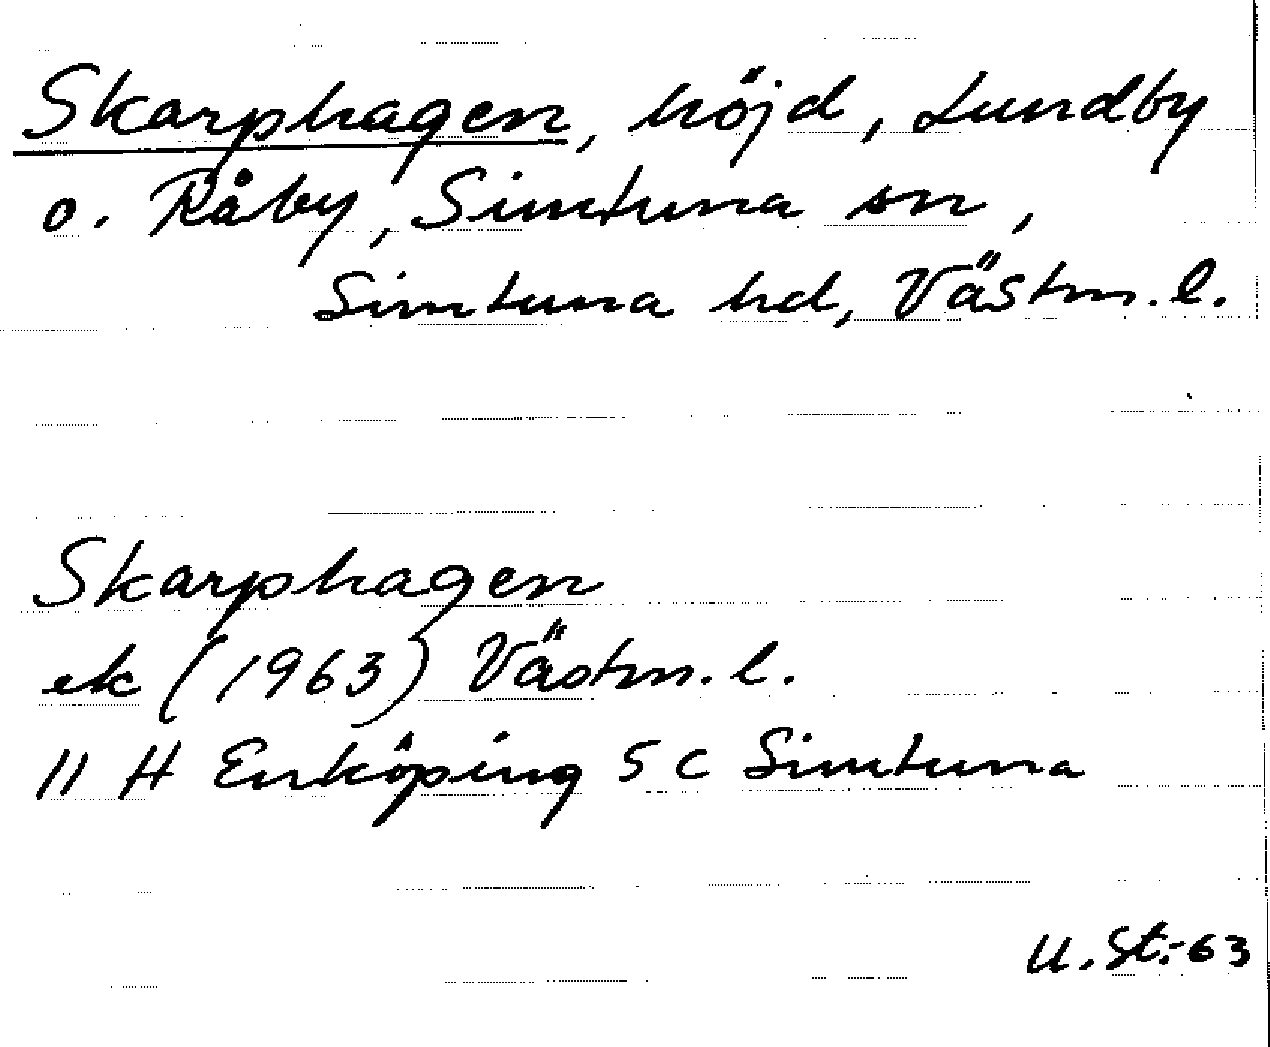 Skarphagen, höjd, Lundby
o. Råby, Simtuna sn,
Simtuna hd, Västm. l.
Skarphagen
ek (1963) Västm. l.
11 H Enköping 5 C Simtuna
U. St. -63